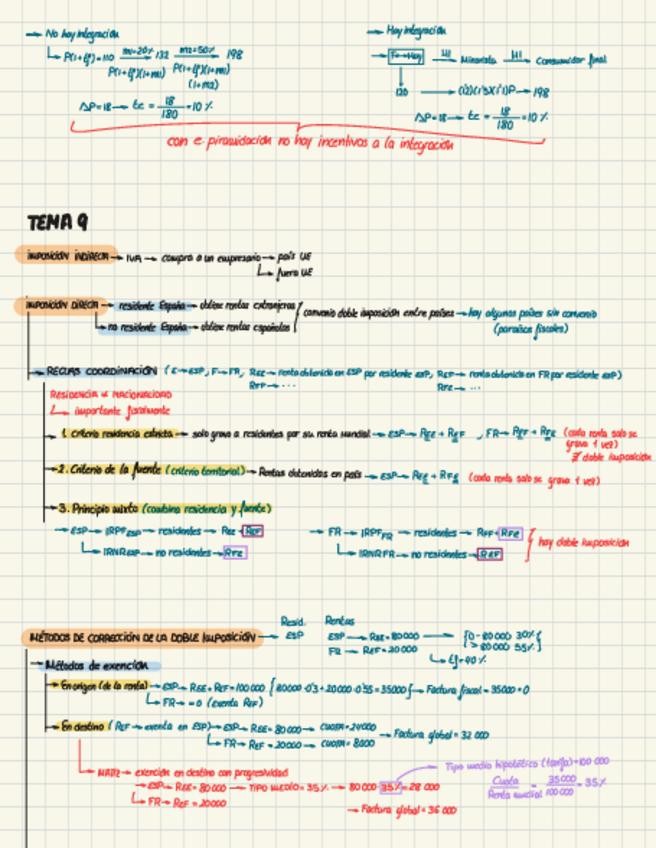 → No hay integración
→ Hay integración
P(1+tp)=110 m1=20% 132 m2=50% 198
P(1+tp)(1+m1) P(1+tp)(1+m1)
(1+m2)
→ Minorista → Consumidor final
120 → (1'2)(1'5)(1'1)P → 198
ΔP=18 → te = 18/180 = 10%
ΔP=18 → te = 18/180 = 10%
con e. piramidación no hay incentivos a la integración
TEMA 9
IMPOSICIÓN INDIRECTA → IVA → compra a un empresario → país UE
→ fuera UE
IMPOSICIÓN DIRECTA → residente España → obtiene rentas extranjeras
→ no residente España → obtiene rentas españolas
convenio doble imposición entre países → hay algunos países sin convenio
(paraísos fiscales)
→ REGLAS COORDINACIÓN (E→ESP, F→FR, REE → renta obtenida en ESP por residente ESP, REF → renta obtenida en FR por residente ESP)
RFF → ... RFE → ...
RESIDENCIA ≠ NACIONALIDAD
→ importante fiscalmente
→ 1. Criterio residencia estricta → solo grava a residentes por su renta mundial → ESP → REE + REF , FR → RFF + RFE (cada renta solo se
grava 1 vez)
∄ doble imposición
→ 2. Criterio de la fuente (criterio territorial) → Rentas obtenidas en país → ESP → REE + RFE (cada renta solo se grava 1 vez)
→ 3. Principio mixto (combina residencia y fuente)
→ ESP → IRPF ESP → residentes → REE + REF
→ IRNR ESP → no residentes → RFE
→ FR → IRPF FR → residentes → RFF + RFE
→ IRNR FR → no residentes → REF
hay doble imposición
Resid. Rentas
MÉTODOS DE CORRECCIÓN DE LA DOBLE IMPOSICIÓN → ESP ESP → REE = 80000 → {0-80000 30%
FR → REF = 20000 >80000 55%}
→ tf = 40%
→ Métodos de exención
→ En origen (de la renta) → ESP → REE + REF = 100000 [80000·0'3 + 20000·0'55 = 35000] → Factura fiscal = 35000 + 0
→ FR → = 0 (exenta REF)
→ En destino (REF → exenta en ESP) → ESP → REE = 80000 → CUOTA = 24000
→ FR → REF = 20000 → CUOTA = 8000
→ Factura global = 32000
→ exención en destino con progresividad
→ ESP → REE = 80000 → TIPO MEDIO = 35% → 80000·35% = 28000
→ FR → REF = 20000
→ Factura global = 36000
Tipo medio hipotético (tarifa) → 100000
Cuota/Renta mundial = 35000/100000 = 35%